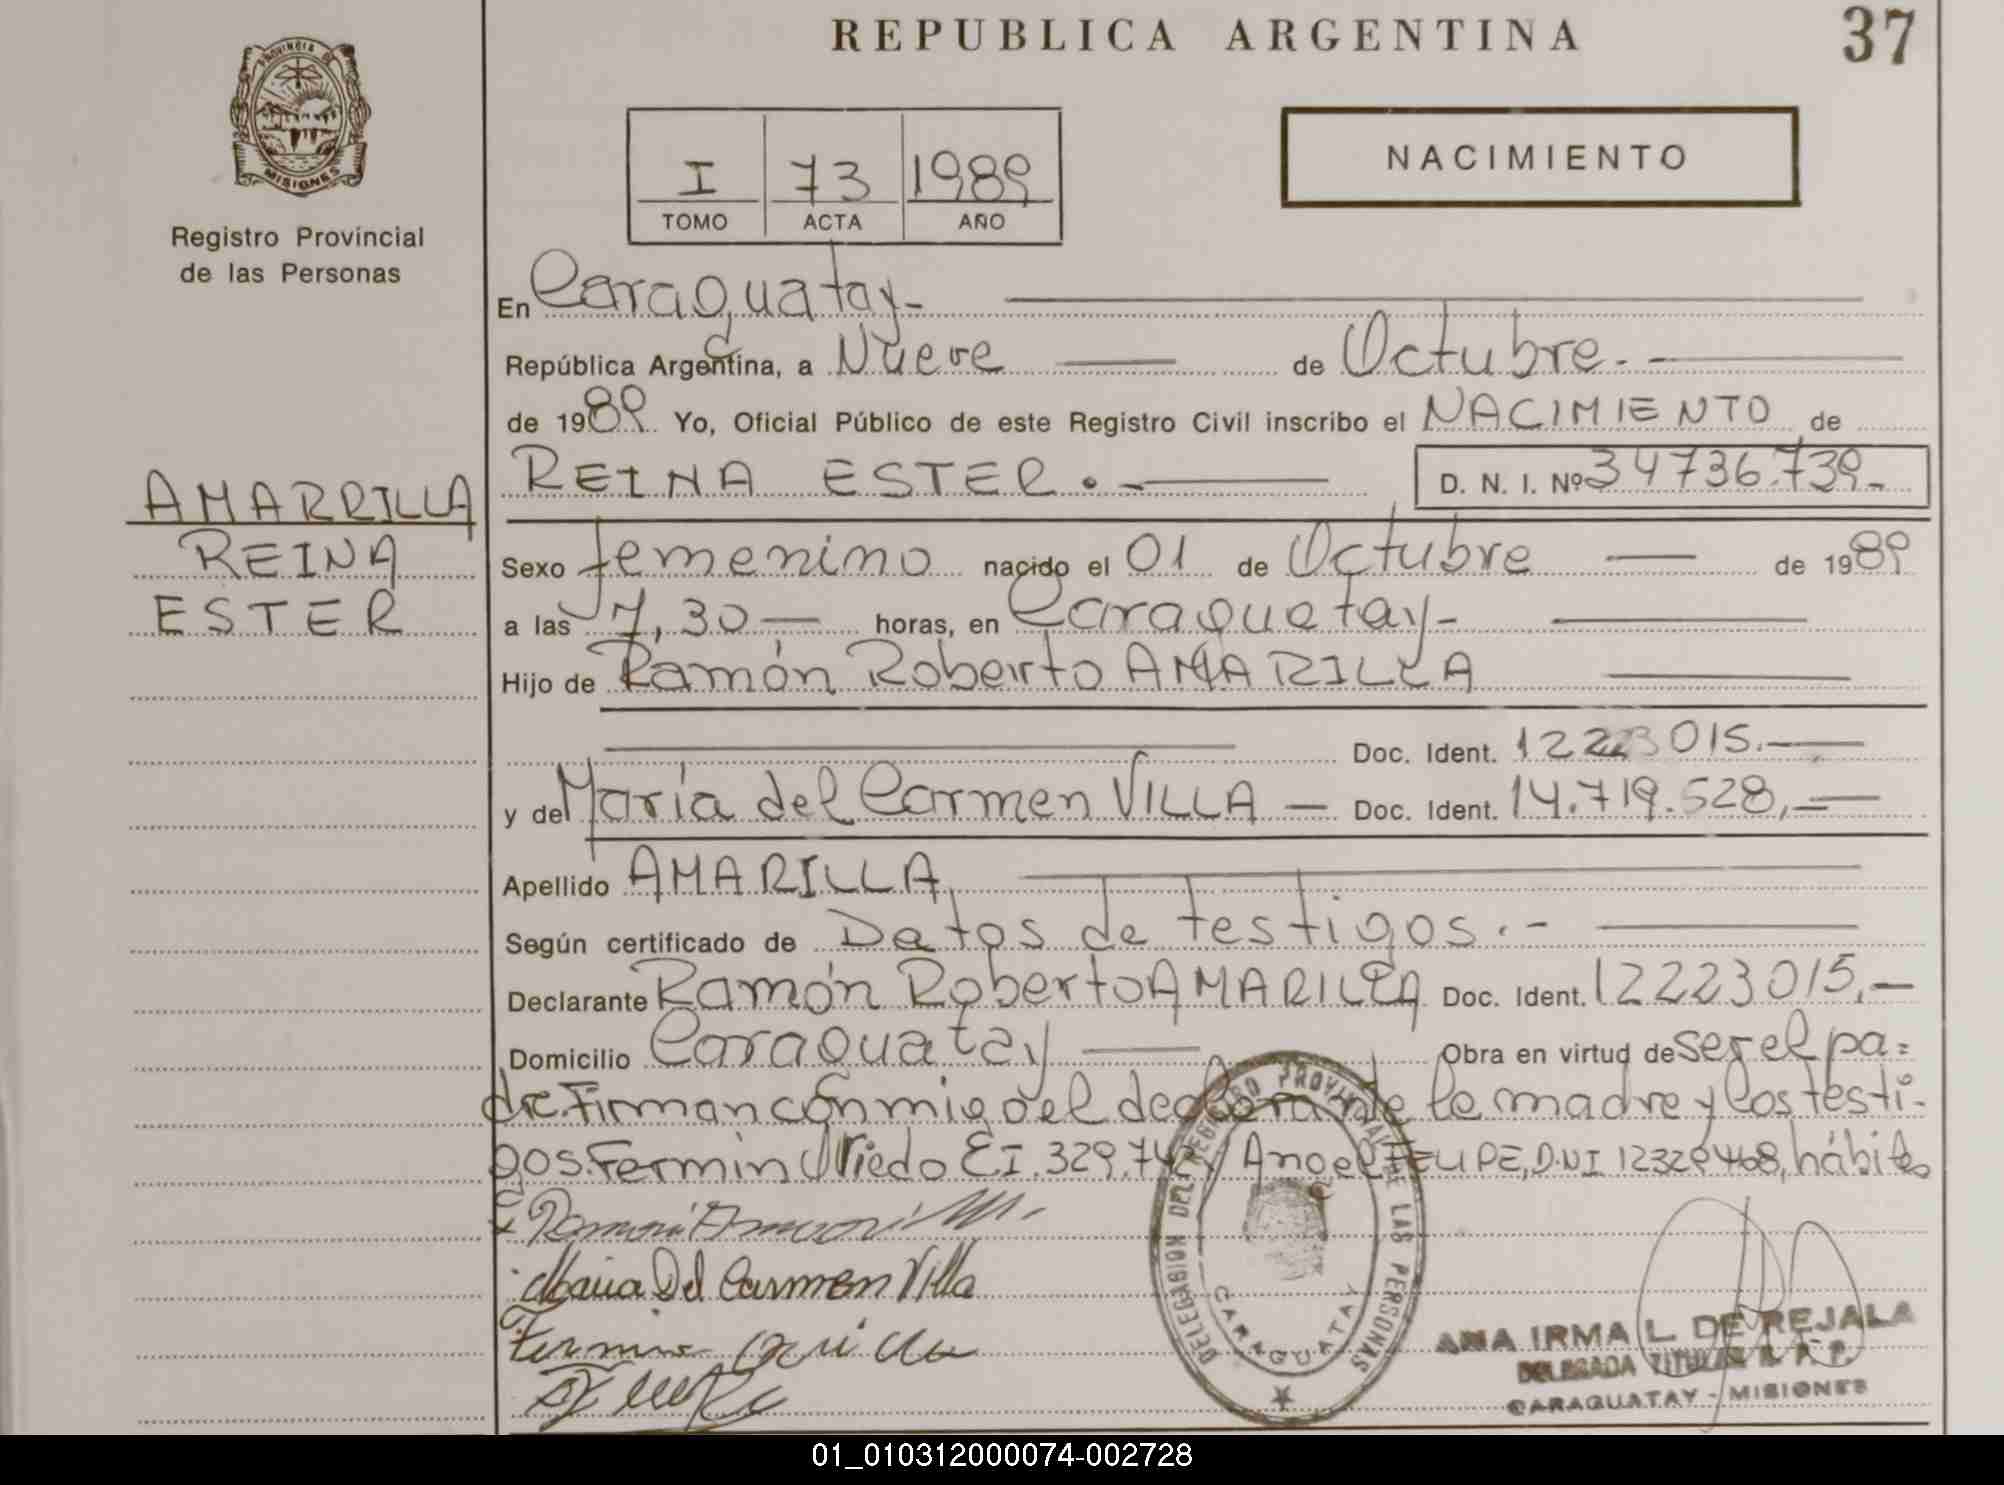 REPUBLICA ARGENTINA
37
PROVINCIA DE
MISIONES
Registro Provincial
de las Personas
I 73 1989
TOMO ACTA AÑO
NACIMIENTO
En Caraguatay-
República Argentina, a Nueve de Octubre.-
de 1989 Yo, Oficial Público de este Registro Civil inscribo el NACIMIENTO de
REINA ESTER.- D. N. I. Nº 34736.739-
AMARRILLA
REINA
ESTER
Sexo femenino nacido el 01 de Octubre de 1989
a las 7,30 horas, en Caraguatay-
Hijo de Ramón Roberto AMARILLA
Doc. Ident. 12223015.-
y de María del Carmen VILLA - Doc. Ident. 14.719.528,-
Apellido AMARILLA
Según certificado de Datos de testigos.-
Declarante Ramón Roberto AMARILLA Doc. Ident. 12223015.-
Domicilio Caraguatay Obra en virtud de ser el pa=
dre. Firman conmigo el declarante la madre y los testi-
gos. Fermin Oviedo EI. 329.74 Angel FELIPE, D.N.I 12329468, hábiles
Maria Del Carmen Villa
DELEGACION DEL REGISTRO PROVINCIAL DE LAS PERSONAS
CARAGUATAY
ANA IRMA L. DE REJALA
DELEGADA TITULAR R. P. P.
CARAGUATAY - MISIONES
01_010312000074-002728